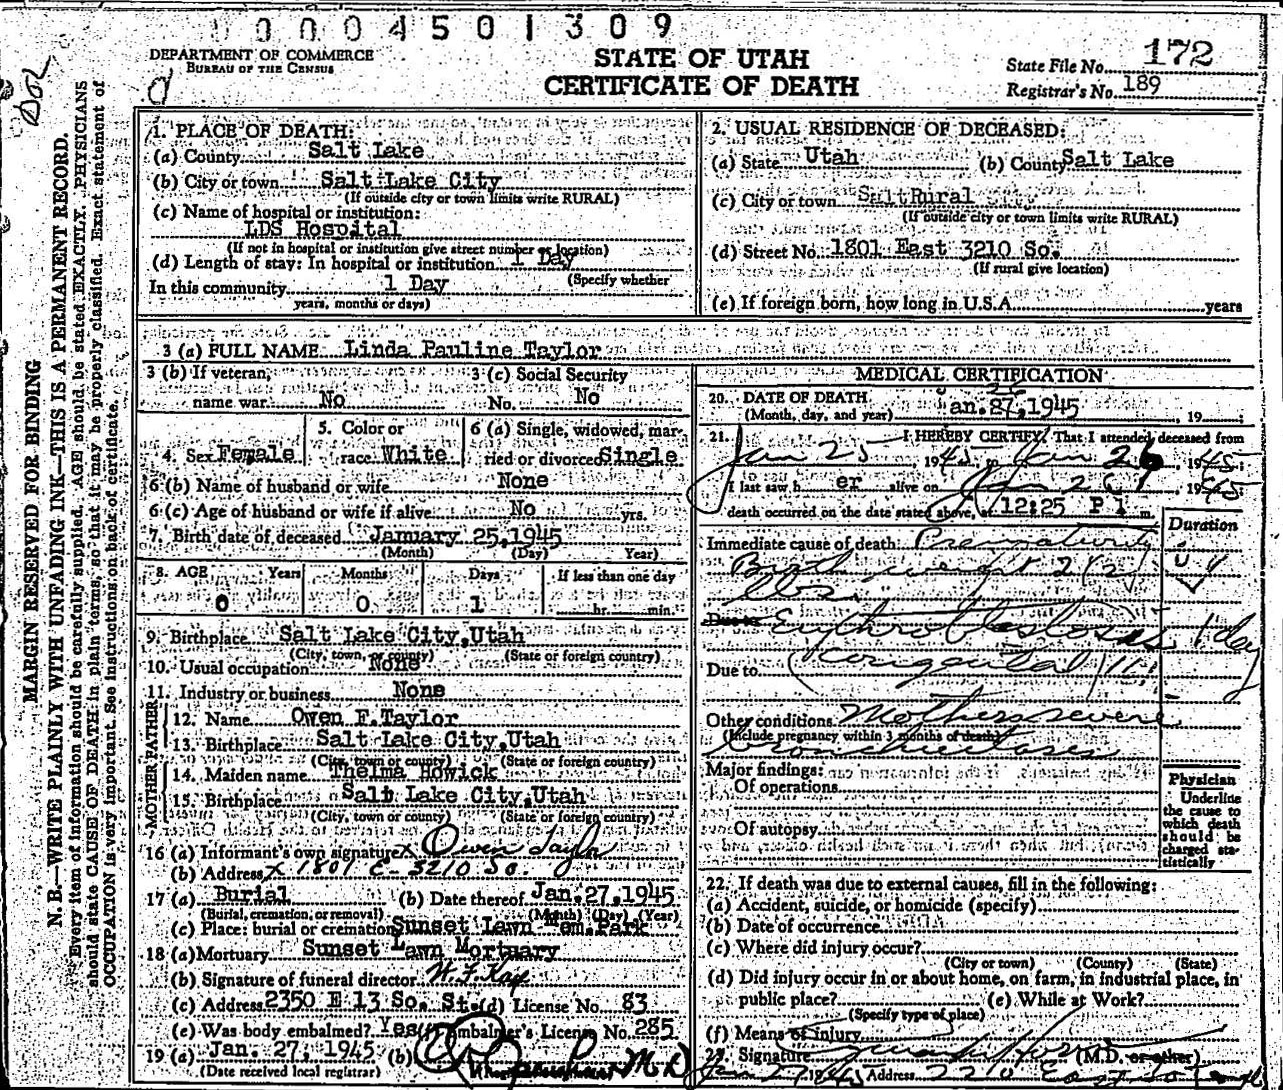 0004501309
DEPARTMENT OF COMMERCE
BUREAU OF THE CENSUS
STATE OF UTAH
CERTIFICATE OF DEATH
State File No. 172
Registrar's No. 189
MARGIN RESERVED FOR BINDING
N. B.—WRITE PLAINLY WITH UNFADING INK—THIS IS A PERMANENT RECORD.
Every item of information should be carefully supplied. AGE should be stated EXACTLY. PHYSICIANS
should state CAUSE OF DEATH in plain terms, so that it may be properly classified. Exact statement of
OCCUPATION is very important. See instructions on back of certificate.
1. PLACE OF DEATH:
(a) County Salt Lake
(b) City or town Salt Lake City
(If outside city or town limits write RURAL)
(c) Name of hospital or institution:
LDS Hospital
(If not in hospital or institution give street number or location)
(d) Length of stay: In hospital or institution 1 Day
(Specify whether
In this community 1 Day
years, months or days)
2. USUAL RESIDENCE OF DECEASED:
(a) State Utah (b) County Salt Lake
(c) City or town Rural
(If outside city or town limits write RURAL)
(d) Street No. 1801 East 3210 So.
(If rural give location)
(e) If foreign born, how long in U.S.A. years
3 (a) FULL NAME Linda Pauline Taylor
3 (b) If veteran, name war No
3 (c) Social Security No. No
4. Sex Female
5. Color or race White
6 (a) Single, widowed, married or divorced Single
6 (b) Name of husband or wife None
6 (c) Age of husband or wife if alive No yrs.
7. Birth date of deceased January 25, 1945
(Month) (Day) Year)
8. AGE Years Months Days If less than one day
0 0 1 hr. min.
9. Birthplace Salt Lake City, Utah
(City, town, or county) (State or foreign country)
10. Usual occupation None
11. Industry or business None
FATHER
12. Name Owen F. Taylor
13. Birthplace Salt Lake City, Utah
(City, town or county) (State or foreign country)
MOTHER
14. Maiden name Thelma Howick
15. Birthplace Salt Lake City, Utah
(City, town or county) (State or foreign country)
16 (a) Informant's own signature x Owen Taylor
(b) Address x 1801 E- 3210 So.
17 (a) Burial (b) Date thereof Jan. 27, 1945
(Burial, cremation, or removal) (Month) (Day) (Year)
(c) Place: burial or cremation Sunset Lawn Mem. Park
18 (a) Mortuary Sunset Lawn Mortuary
(b) Signature of funeral director
(c) Address 2350 E 13 So. St. (d) License No. 83
(e) Was body embalmed? Yes (f) Embalmer's License No. 285
19 (a) Jan. 27, 1945 (b) M D
(Date received local registrar)
MEDICAL CERTIFICATION
20. DATE OF DEATH
26
(Month, day, and year) an. 27, 1945 19
21. I HEREBY CERTIFY, That I attended deceased from
Jan 25 1945, Jan 26 1945;
I last saw h er alive on Jan 26 1945
death occurred on the date stated above, at 12:25 P m.
Duration
Immediate cause of death: Prematurity
Birth weight 2 1/2
lbs.
Due to Erythroblastosis 1 day
Due to (congenital)
Other conditions Mothers severe
(Include pregnancy within 3 months of death)
bronchiectasis
Major findings:
Of operations
Of autopsy
Physician
Underline
the cause to
which death
should be
charged sta-
tistically
22. If death was due to external causes, fill in the following:
(a) Accident, suicide, or homicide (specify)
(b) Date of occurrence
(c) Where did injury occur?
(City or town) (County) (State)
(d) Did injury occur in or about home, on farm, in industrial place, in
public place? (e) While at Work?
(Specify type of place)
(f) Means of injury
23. Signature (M.D. or other)
Jan 27 1945 Address 220